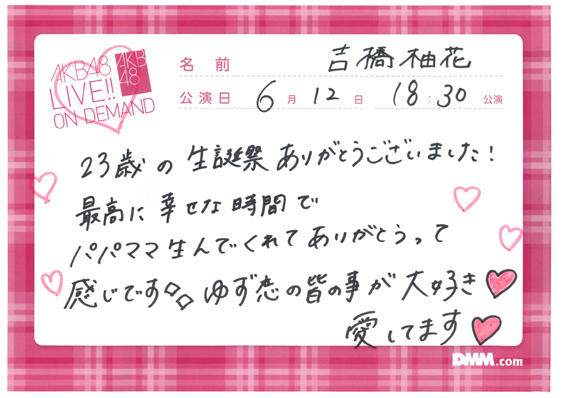 AKB48
LIVE!!
ON DEMAND
AKB
48
名前 吉橋柚花
公演日 6月12日 18:30公演
23歳の生誕祭ありがとうございました!
最高に幸せな時間で
パパママ生んでくれてありがとうって
感じです ゆず恋の皆の事が大好き
愛してます
DMM.com